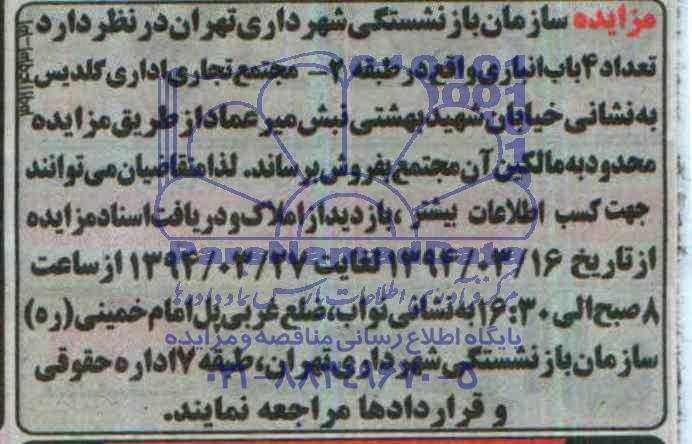 مزایده سازمان بازنشستگی شهرداری تهران در نظر دارد
تعداد ۴ باب انباری واقع در طبقه ۲- مجتمع تجاری اداری گلدیس
به نشانی خیابان شهید بهشتی نبش میرعماد از طریق مزایده
محدود به مالکین آن مجتمع بفروش برساند. لذا متقاضیان می توانند
جهت کسب اطلاعات بیشتر ، بازدید از املاک و دریافت اسناد مزایده
از تاریخ ۱۳۹۴/۰۳/۱۶ لغایت ۱۳۹۴/۰۳/۲۷ از ساعت
۸ صبح الی ۱۶:۳۰ به نشانی نواب، ضلع غربی پل امام خمینی (ره)
سازمان بازنشستگی شهرداری تهران، طبقه ۷ اداره حقوقی
و قراردادها مراجعه نمایند.
ParsNamadData
پایگاه اطلاع رسانی مناقصه و مزایده
۰۲۱-۸۸۳۴۹۶۷۰-۵